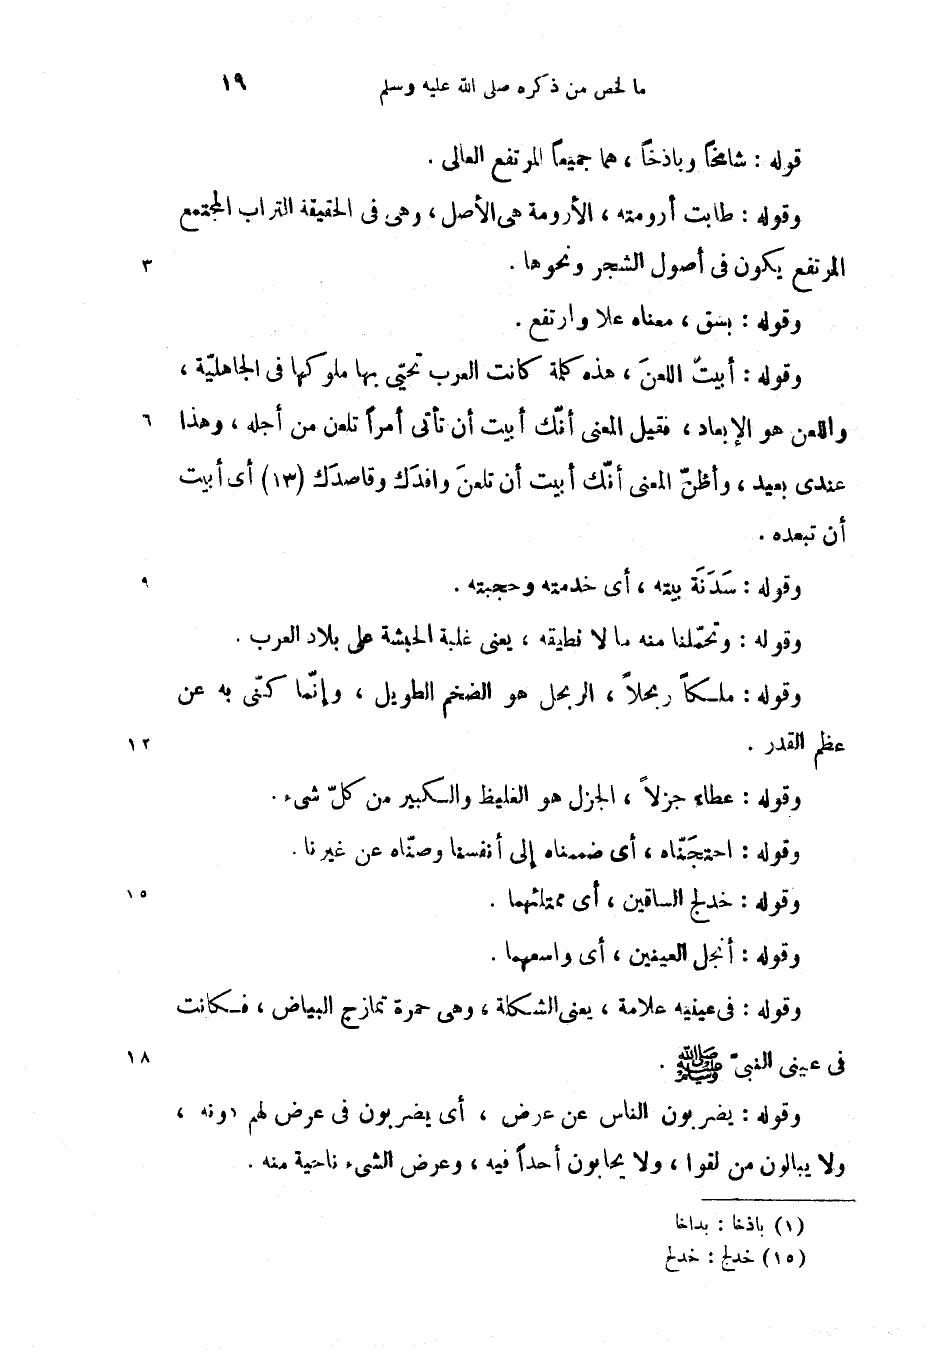 ما لخص من ذكره صلى الله عليه وسلم ١٩
قوله : شامخاً وباذخاً ، هما جميعاً المرتفع العالى .
وقوله : طابت أرومته ، الأرومة هى الأصل ، وهى فى الحقيقة التراب المجتمع
المرتفع يكون فى أصول الشجر ونحوها . ٣
وقوله : بسق ، معناه علا وارتفع .
وقوله : أبيتَ اللعنَ ، هذه كلمة كانت العرب تحيّى بها ملوكها فى الجاهليّة ،
واللعن هو الإبعاد ، فقيل المعنى أنّك أبيت أن تأتى أمراً تلعن من أجله ، وهذا ٦
عندى بعيد ، وأظنّ المعنى أنّك أبيت أن تلعنَ وافدَك وقاصدَك (١٣) أى أبيت
أن تبعده .
وقوله : سَدَنَة بيته ، أى خدمته وحجبته . ٩
وقوله : وتحمّلنا منه ما لا نطيقه ، يعنى غلبة الحبشة على بلاد العرب .
وقوله : ملكاً ربحلاً ، الربحل هو الضخم الطويل ، وإنّما كنّى به عن
عظم القدر . ١٢
وقوله : عطاء جزلاً ، الجزل هو الغليظ والكبير من كلّ شىء .
وقوله : احتجَنّاه ، أى ضممناه إلى أنفسنا وصنّاه عن غيرنا .
وقوله : خدلج الساقين ، أى ممتلئهما . ١٥
وقوله : أنجل العينين ، أى واسعهما .
وقوله : فى عينيه علامة ، يعنى الشكلة ، وهى حمرة تمازج البياض ، فكانت
فى عينى النبىّ ﷺ . ١٨
وقوله : يضربون الناس عن عرض ، أى يضربون فى عرض لهم دونه ،
ولا يبالون من لقوا ، ولا يحابون أحداً فيه ، وعرض الشىء ناحية منه .
(١) باذخا : بداخا
(١٥) خدلج : خدلح